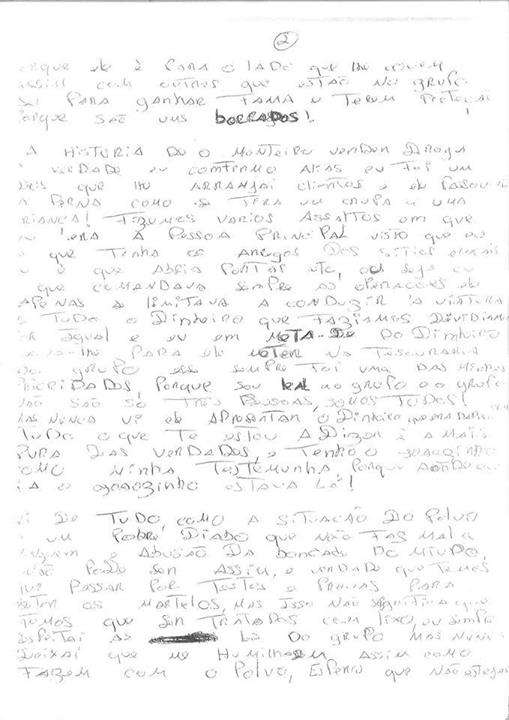 2
orque ele é PARA O LADO que lhe convem
assim com outros que estão no grupo
só PARA ganhar FAMA e Terem Proteção
Porque são uns BORRADOS!
A HisTORIA DE O MONTEIRO vender DROGA
é verdade eu comfirmo ALIAS eu Foi um
deis que lhe ARRANJAI clientes e ele Passou
A PERNA como se TIRA uma CHUPA A UMA
RIANCA! Fizemos VARIOS ASSALTOS em que
ERA A Pessoa PRINCIPAL visto que eu
que Tinha os Amigos DOS SITIOS
e que ABRIA PORTAS etc, ou seja eu
que COMANDAVA sempre as operações ele
APENAS se limitava A CONDUZIR A VIATURA
e TUDO o Dinheiro que FAZIAMOS DIVIDIAMOS
igual e eu em META-DE DO Dinheiro
PARA ele METER NA TESOURARIA
DO grupo sempre Foi UMA DAS MINHAS
Porque sou leal ao grupo e o grupo
não são só TRES Pessoas, somos TODOS!
MAS NUNCA vi ele APresentar o Dinheiro
TuDo o que Te estou A Dizer é A MAis
PURA DAS VERDADES, e Tenho o Joaozinho
COMO minha TesTemunha, Porque Aonde eu
ia o Joaozinho esTAVA LÁ!
TUDO, como A SITUACÃO DO Polvo
é um Pobre DiABO que não FAS MAL A
ninguem e ABUSÃO DA bondade DO MIUDO,
não Pode ser Assim, é verdade que Temos
que Passar Por Testes e Provas PARA
os MARTELOS, MAS Isso não significa que
Temos que ser TRATADOS como lixo, eu sempre
respeitai As Do grupo MAS Nunca
Deixai que me Humilhasem Assim como
FAZEM com o Polvo, Espero que não estejas